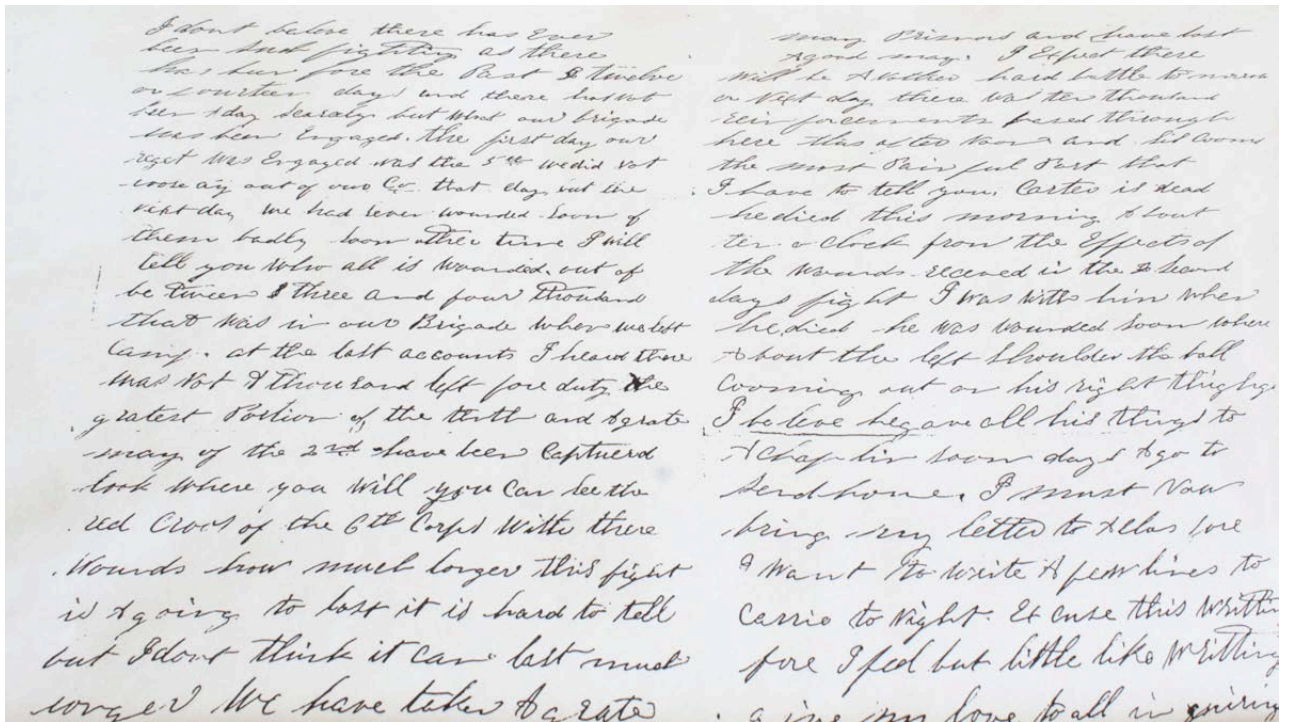 I dont beleve there has Ever
been such fighting as there
has bun fore the Past twelve
or fourteen days and there has Not
been A day scarcely but What our brigade
was been Engaged. the first day our
reget Was Engaged was the 5th we did Not
loose any out of our Co. that day but the
next day we had seven wounded soom of
them badly soom other time I will
tell you Who all is Wounded. out of
be twicen three and four thousand
that Was in our Brigade when we left
Camp. at the last accounts I heard there
Was Not A thousand left fore duty the
gratest Portion of the tenth and A grate
many of the 2nd have been Captuerd
look where you Will you Can See the
red Cross of the 6th Corps With there
Wounds how much longer this fight
is A going to last it is hard to tell
but I dont think it can last much
longer We have taken A grate
many Prisnors and have lost
A good many. I Expect there
will be Another hard battle to morrow
or Next day there Was ten thousand
reinforcements passed through
here this after Noon and Sil cooms
the most Pain ful Part that
I have to tell you. Carter is dead
he died this morning About
ten o clock from the Effects of
the Wounds receved in the Second
days fight I Was With him When
he died he Was Wounded soom where
About the left Shoulder the ball
Cooming out on his right thigh
I beleve he gave all his things to
A Chaplin soom days A go to
Send home. I must Now
bring my letter to A Clos fore
I Want to Write A few lines to
Carrie to Night. Ex cuse this Writtin
fore I feel but little like Writting
give my love to all in quiring